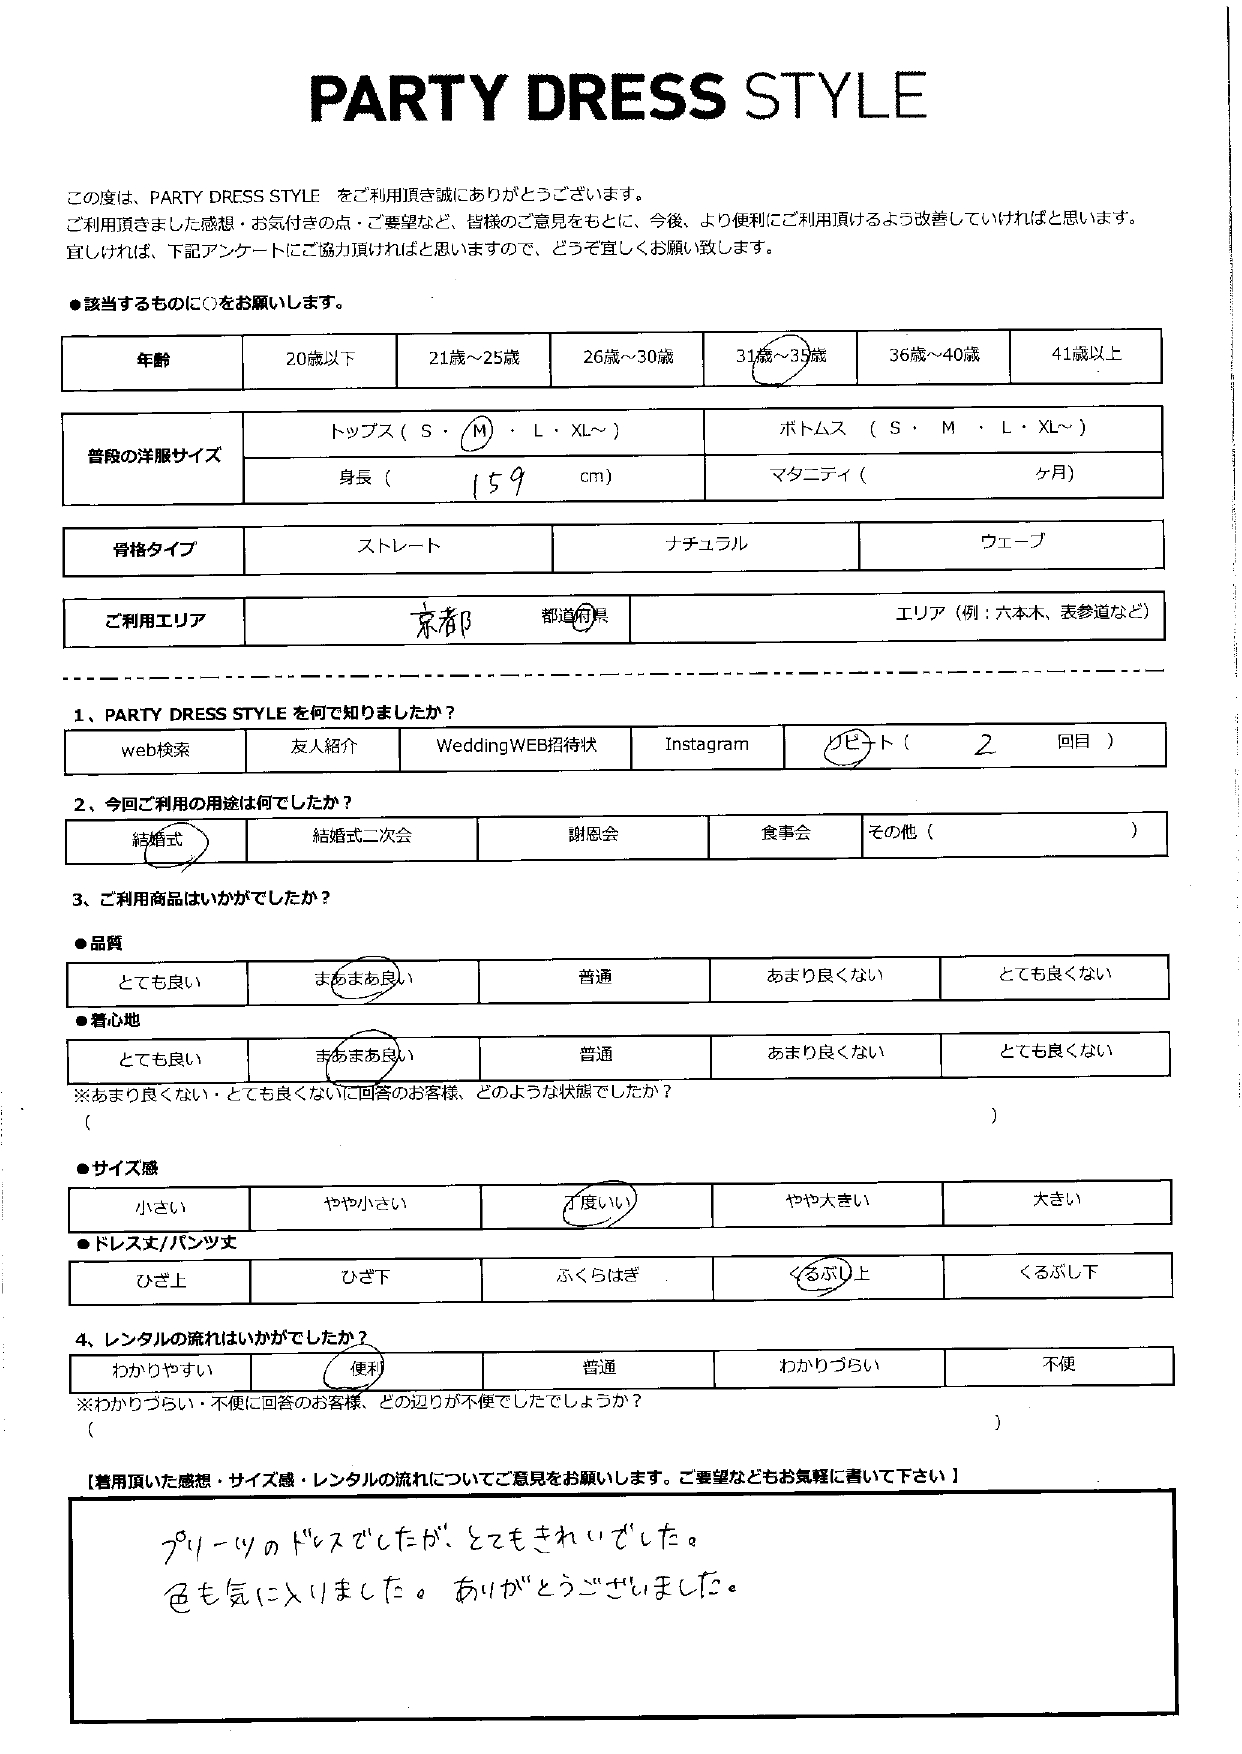 PARTY DRESS STYLE
この度は、PARTY DRESS STYLE をご利用頂き誠にありがとうございます。
ご利用頂きました感想・お気付きの点・ご要望など、皆様のご意見をもとに、今後、より便利にご利用頂けるよう改善していければと思います。
宜しければ、下記アンケートにご協力頂ければと思いますので、どうぞ宜しくお願い致します。
●該当するものに○をお願いします。
年齢 20歳以下 21歳～25歳 26歳～30歳 31歳～35歳 36歳～40歳 41歳以上
普段の洋服サイズ トップス ( S ・ M ・ L ・ XL～ ) ボトムス ( S ・ M ・ L ・ XL～ )
身長 ( 159 cm) マタニティ ( ヶ月)
骨格タイプ ストレート ナチュラル ウェーブ
ご利用エリア 京都 都道府県 エリア（例：六本木、表参道など）
1、PARTY DRESS STYLE を何で知りましたか？
web検索 友人紹介 WeddingWEB招待状 Instagram リピート ( 2 回目 )
2、今回ご利用の用途は何でしたか？
結婚式 結婚式二次会 謝恩会 食事会 その他 ( )
3、ご利用商品はいかがでしたか？
●品質
とても良い まあまあ良い 普通 あまり良くない とても良くない
●着心地
とても良い まあまあ良い 普通 あまり良くない とても良くない
※あまり良くない・とても良くないに回答のお客様、どのような状態でしたか？
( )
●サイズ感
小さい やや小さい 丁度いい やや大きい 大きい
●ドレス丈/パンツ丈
ひざ上 ひざ下 ふくらはぎ くるぶし上 くるぶし下
4、レンタルの流れはいかがでしたか？
わかりやすい 便利 普通 わかりづらい 不便
※わかりづらい・不便に回答のお客様、どの辺りが不便でしたでしょうか？
( )
【着用頂いた感想・サイズ感・レンタルの流れについてご意見をお願いします。ご要望などもお気軽に書いて下さい】
プリーツのドレスでしたが、とてもきれいでした。
色も気に入りました。ありがとうございました。